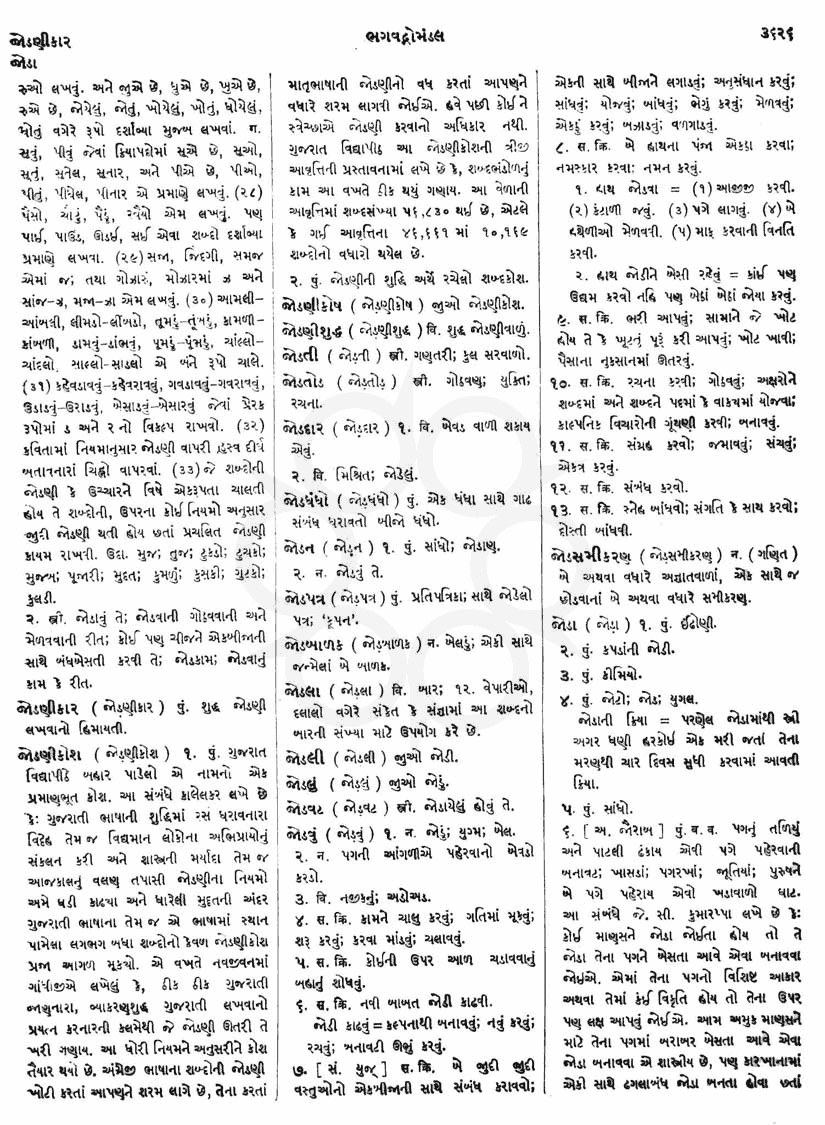 જોડણીકાર
ભગવદ્ગોમંડલ
૩૬૨૬
જોડા
રુઓ લખવું. અને જુએ છે, ધુએ છે, ખુએ છે,
રુએ છે, જોયેલું, જોતું, ખોયેલું, ખોતું, ધોયેલું,
ધોતું વગેરે રૂપો દર્શાવ્યા મુજબ લખવાં. ન.
સૂવું, પીવું જેવાં ક્રિયાપદોમાં સૂએ છે, સૂઓ,
સૂતું, સૂતેલ, સૂનાર, અને પીએ છે, પીઓ,
પીતું, પીધેલ, પીનાર એ પ્રમાણે લખવું. (૨૮)
પૈસો, ચૌડું, પૈડું, રવૈયો એમ લખવું. પણ
પાઈ, પાઉંડ, ઊડઈ, સઈ એવા શબ્દો દર્શાવ્યા
પ્રમાણે લખવા. (૨૯) સજા, જિંદગી, સમજ
એમાં જ; તથા ગોઝારું, મોઝારમાં ઝ અને
સાંજ-ઝ, મજા-ઝા એમ લખવું. (૩૦) આમલી-
આંબલી, લીમડો-લીંબડો, તૂમડું-તૂંબડું, કામળી-
કાંબળી, ડામવું-ડાંભવું, પૂમડું-પૂંભડું, ચાંલ્લો-
ચાંદલો, સાલ્લો-સાડલો એ બંને રૂપો ચાલે.
(૩૧) કહેવડાવવું-કહેવરાવવું, ગવડાવવું-ગવરાવવું,
ઉડાડવું-ઉરાડવું, બેસાડવું-બેસારવું જેવાં પ્રેરક
રૂપોમાં ડ અને ર નો વિકલ્પ રાખવો. (૩૨)
કવિતામાં નિયમાનુસાર જોડણી વાપરી હ્રસ્વ દીર્ઘ
બતાવનારાં ચિહ્નો વાપરવાં. (૩૩) જે શબ્દોની
જોડણી કે ઉચ્ચારને વિષે એકરૂપતા ચાલતી
હોય તે શબ્દોની, ઉપરના કોઈ નિયમો અનુસાર
જુદી જોડણી થતી હોય છતાં પ્રચલિત જોડણી
કાયમ રાખવી. ઉદા. મુજ; તુજ; ટુકડો; ટુચકો;
મુજબ; પૂજારી; મુદ્દત; કુમળું; કુસકી; ગુટકો;
કુલડી.
૨. સ્ત્રી. જોડાવું તે; જોડવાની ગોઠવવાની અને
મેળવવાની રીત; કોઈ પણ ચીજને એકબીજાની
સાથે બંધબેસતી કરવી તે; જોડકામ; જોડવાનું
કામ કે રીત.
જોડણીકાર ( જોડ઼ણીકાર ) પું. શુદ્ધ જોડણી
લખવાનો હિમાયતી.
જોડણીકોશ ( જોડ઼ણીકોશ ) ૧. પું. ગુજરાત
વિદ્યાપીઠે બહાર પાડેલો એ નામનો એક
પ્રમાણભૂત કોશ. આ સંબંધે કાલેલકર લખે છે
કેઃ ગુજરાતી ભાષાની શુદ્ધિમાં રસ ધરાવનારા
વિદેહ તેમ જ વિદ્યમાન લોકોના અભિપ્રાયોનું
સંકલન કરી અને શાસ્ત્રની મર્યાદા તેમ જ
આજકાલનું વલણ તપાસી જોડણીના નિયમો
અમે ઘડી કાઢ્યા અને ધારેલી મુદ્દતની અંદર
ગુજરાતી ભાષાના તેમ જ એ ભાષામાં સ્થાન
પામેલા લગભગ બધા શબ્દોનો કેવળ જોડણીકોશ
પ્રજા આગળ મૂક્યો. એ વખતે નવજીવનમાં
ગાંધીજીએ લખેલું કે, ઠીક ઠીક ગુજરાતી
જાણનારા, વ્યાકરણશુદ્ધ ગુજરાતી લખવાનો
પ્રયત્ન કરનારની કલમેથી જે જોડણી ઊતરી તે
ખરી ગણાય. આ ધોરી નિયમને અનુસરીને કોશ
તૈયાર થયો છે. અંગ્રેજી ભાષાના શબ્દોની જોડણી
ખોટી કરતાં આપણને શરમ લાગે છે, તેના કરતાં
માતૃભાષાની જોડણીનો વધ કરતાં આપણને
વધારે શરમ લાગવી જોઈએ. હવે પછી કોઈ ને
સ્વેચ્છાએ જોડણી કરવાનો અધિકાર નથી.
ગુજરાત વિદ્યાપીઠ આ જોડણીકોશની ત્રીજી
આવૃત્તિની પ્રસ્તાવનામાં લખે છે કે, શબ્દભંડોળનું
કામ આ વખતે ઠીક થયું ગણાય. આ વેળાની
આવૃત્તિમાં શબ્દસંખ્યા ૫૬,૮૩૦ થઈ છે, એટલે
કે ગઈ આવૃત્તિના ૪૬,૬૬૧ માં ૧૦,૧૬૯
શબ્દોનો વધારો થયેલ છે.
૨. પું. જોડણીની શુદ્ધિ અર્થે રચેલો શબ્દકોશ.
જોડણીકોષ ( જોડ઼ણીકોષ ) જુઓ જોડણીકોશ.
જોડણીશુદ્ધ ( જોડ઼ણીશુદ્ધ ) વિ. શુદ્ધ જોડણીવાળું.
જોડતી ( જોડ઼તી ) સ્ત્રી. ગણતરી; કુલ સરવાળો.
જોડતોડ ( જોડ઼તોડ઼ ) સ્ત્રી. ગોઠવણ; યુક્તિ;
રચના.
જોડદાર ( જોડ઼દાર ) ૧. વિ. બેવડ વાળી શકાય
એવું.
૨. વિ. મિશ્રિત; જોડેલું.
જોડધંધો ( જોડ઼ધંધો ) પું. એક ધંધા સાથે ગાઢ
સંબંધ ધરાવતો બીજો ધંધો.
જોડન ( જોડ઼ન ) ૧. પું. સાંધો; જોડાણ.
૨. ન. જોડવું તે.
જોડપત્ર ( જોડ઼પત્ર ) પું. પ્રતિપત્રિકા; સાથે જોડેલો
પત્ર; ‘કૂપન’.
જોડબાળક ( જોડ઼બાળક ) ન. બેલડું; એકી સાથે
જન્મેલાં બે બાળક.
જોડલા ( જોડ઼લા ) વિ. બાર; ૧૨. વેપારીઓ,
દલાલો વગેરે સંકેત કે સંજ્ઞામાં આ શબ્દનો
બારની સંખ્યા માટે ઉપયોગ કરે છે.
જોડલી ( જોડ઼લી ) જુઓ જોડી.
જોડલું ( જોડ઼લું ) જુઓ જોડું.
જોડવટ ( જોડ઼વટ ) સ્ત્રી. જોડાયેલું હોવું તે.
જોડવું ( જોડ઼વું ) ૧. ન. જોડું; યુગ્મ; બેલ.
૨. ન. પગની આંગળીએ પહેરવાનો બેવડો
કરડો.
૩. વિ. નજીકનું; અડોઅડ.
૪. સ. ક્રિ. કામને ચાલુ કરવું; ગતિમાં મૂકવું;
શરૂ કરવું; કરવા માંડવું; ચલાવવું.
૫. સ. ક્રિ. કોઈની ઉપર આળ ચડાવવાનું
બહાનું શોધવું.
૬. સ. ક્રિ. નવી બાબત જોડી કાઢવી.
જોડી કાઢવું = કલ્પનાથી બનાવવું; નવું કરવું;
રચવું; બનાવટી ઊભું કરવું.
૭. [ સં. યુજ્ ] સ. ક્રિ. બે જુદી જુદી
વસ્તુઓનો એકબીજાની સાથે સંબંધ કરાવવો;
એકની સાથે બીજાને લગાડવું; અનુસંધાન કરવું;
સાંધવું; યોજવું; બાંધવું; ભેગું કરવું; મેળવવું;
એકઠું કરવું; બઝાડવું; વળગાડવું.
૮. સ. ક્રિ. બે હાથના પંજા એકઠા કરવા;
નમસ્કાર કરવા; નમન કરવું.
૧. હાથ જોડવા = (૧) આજીજી કરવી.
(૨) કંટાળી જવું. (૩) પગે લાગવું. (૪) બે
હથેળીઓ મેળવવી. (૫) માફ કરવાની વિનતિ
કરવી.
૨. હાથ જોડીને બેસી રહેવું = કાંઈ પણ
ઉદ્યમ કરવો નહિ પણ બેઠાં બેઠાં જોયા કરવું.
૯. સ. ક્રિ. ભરી આપવું; સામાને જે ખોટ
હોય તે કે ખૂટતું પૂરું કરી આપવું; ખોટ ખાવી;
પૈસાના નુકસાનમાં ઊતરવું.
૧૦. સ. ક્રિ. રચના કરવી; ગોઠવવું; અક્ષરોને
શબ્દમાં અને શબ્દને પદમાં કે વાક્યમાં યોજવા;
કાલ્પનિક વિચારોની ગૂંથણી કરવી; બનાવવું.
૧૧. સ. ક્રિ. સંગ્રહ કરવો; જમાવવું; સંચવું;
એકત્ર કરવું.
૧૨. સ. ક્રિ. સંબંધ કરવો.
૧૩. સ. ક્રિ. સ્નેહ બાંધવો; સંગતિ કે સાથ કરવો;
દોસ્તી બાંધવી.
જોડસમીકરણ ( જોડ઼સમીકરણ ) ન. (ગણિત)
બે અથવા વધારે અજ્ઞાતવાળાં, એક સાથે જ
છોડવાનાં બે અથવા વધારે સમીકરણ.
જોડા ( જોડ઼ા ) ૧. પું. ઈંઢોણી.
૨. પું. કપડાંની જોડી.
૩. પું. કીમિયો.
૪. પું. જોટો; જોડ; યુગલ.
જોડાની ક્રિયા = પરણેલ જોડામાંથી સ્ત્રી
અગર ધણી હરકોઈ એક મરી જતાં તેના
મરણથી ચાર દિવસ સુધી કરવામાં આવતી
ક્રિયા.
૫. પું. સાંધો.
૬. [ અ. જૌરાબ ] પું. બ. વ. પગનું તળિયું
અને પાટલી ઢંકાય એવી પગે પહેરવાની
બનાવટ; ખાસડાં; પગરખાં; જૂતિયાં; પુરુષને
બે પગે પહેરાય એવો ખડાવાળો ઘાટ.
આ સંબંધે જે. સી. કુમારપ્પા લખે છે કેઃ
કોઈ માણસને જોડા જોઈતા હોય તો તે
જોડા તેના પગને બેસતા આવે એવા બનાવવા
જોઈએ. એમાં તેના પગનો વિશિષ્ટ આકાર
અથવા તેમાં કંઈ વિકૃતિ હોય તો તેના ઉપર
પણ લક્ષ આપવું જોઈએ. આમ અમુક માણસને
માટે તેના પગમાં બરાબર બેસતા આવે એવા
જોડા બનાવવા એ શાસ્ત્રીય છે, પણ કારખાનામાં
એકી સાથે ઢગલાબંધ જોડા બનતા હોવા છતાં